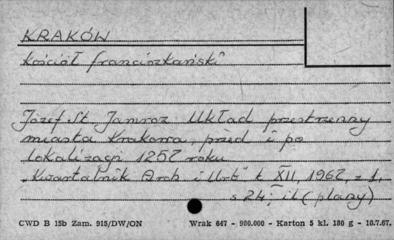 KRAKÓW
kościół franciszkański
Józef St. Jamroz Układ przestrzenny
miasta Krakowa, przed i po
lokalizacji 1257 roku
"Kwartalnik Arch i Urb" t XII, 1967, z 1,
s 24, il (plany)
CWD B 15b Zam. 915/DW/ON Wrak 647 - 900.000 - Karton 5 kl. 180 g - 10.7.67.